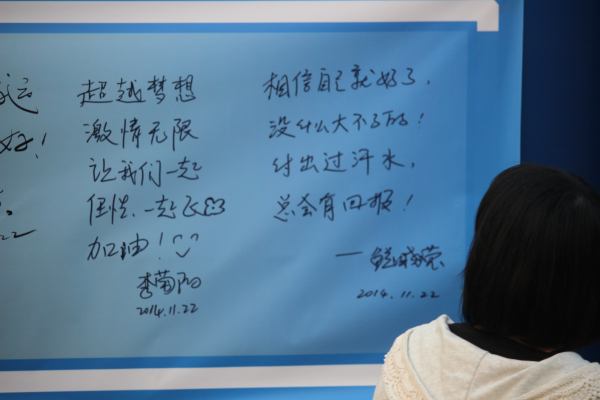 运
好！
22
超越梦想
激情无限
让我们一起
一起飞
加油！
李菊阳
2014.11.22
相信自己就好了，
没什么大不了的！
付出过汗水，
总会有回报！
—
2014.11.22